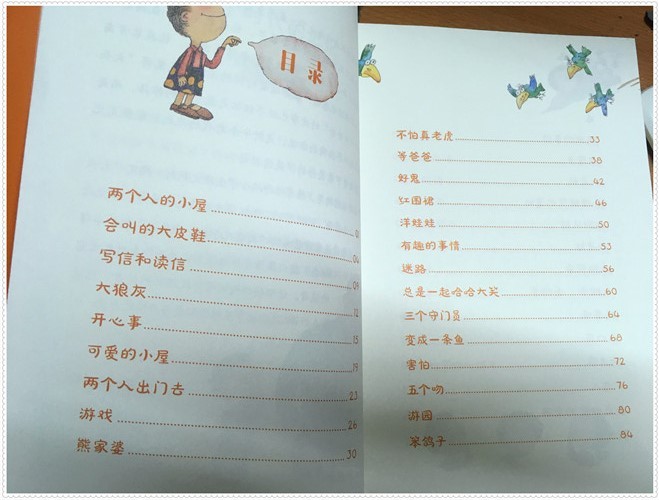 目录
两个人的小屋
会叫的大皮鞋
写信和读信
大狼灰
开心事
可爱的小屋
两个人出门去
游戏 26
熊家婆 30
不怕真老虎 33
等爸爸 38
好鬼 42
红围裙 46
洋娃娃 50
有趣的事情 53
迷路 56
总是一起哈哈大笑 60
三个守门员 64
变成一条鱼 68
害怕 72
五个吻 76
游园 80
笨鸽子 84